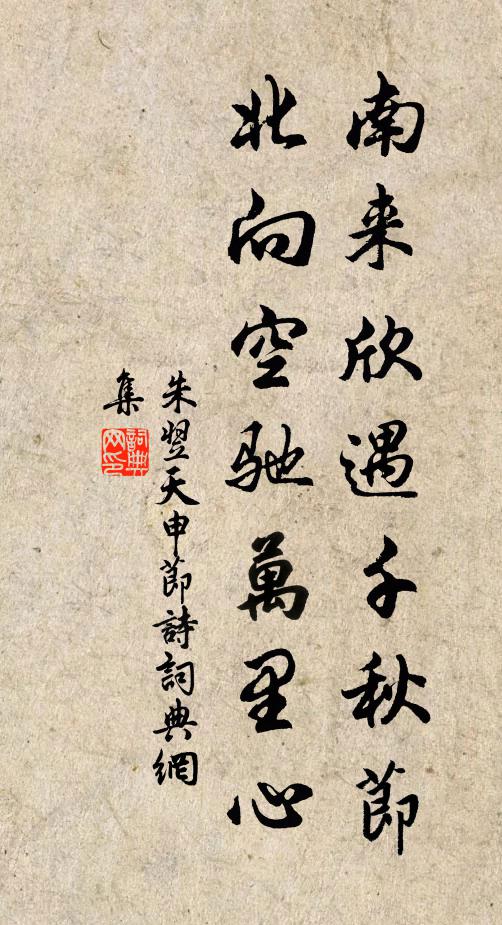 南来欣遇千秋節
北向空馳萬里心
朱翌天申節詩詞典網
集
詞典
网印